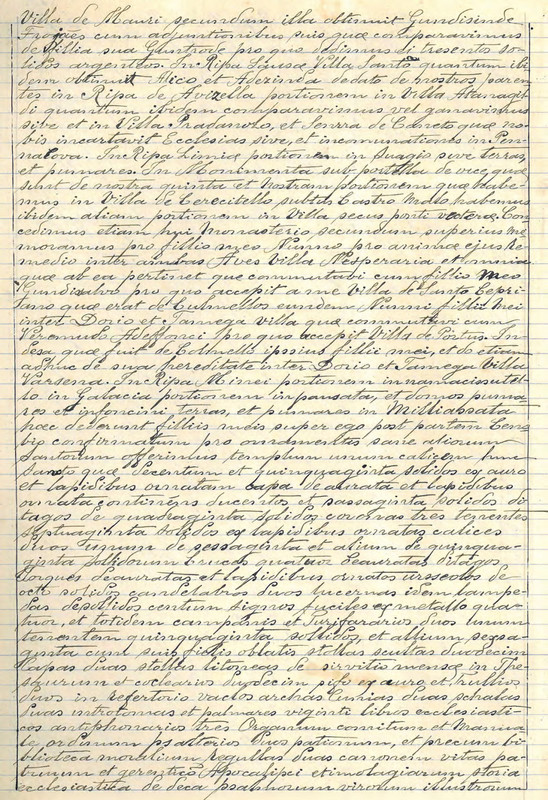 Villa de Mauri secundum illa obtinuit Gundisinde
Froiaes cum adjuntionibus suis quæ comparavimus
de Villia sua Guntrode pro quo dedimus di tresentos so-
lidis argenteos. In Ripa Villa Santa quantum ibi
dem obtinuit Alico et Adezinda dedato de nostros paren
tes in Ripa de Avizella portionem in Villa Atanagil
di quantum ibidem comparavimus vel ganavimus
sive et in Villa Pradanolo, et Senrra de Caneto quæ no-
bis incartavit Ecclesias sive, et incomuniationes in Pen-
nalova. In Ripa Limiæ portionem in Suagio sive terras,
et pumares. In Monimenta sub portella de vice, quæ
sunt de nostra quinta et nostram portionem quæ habe-
mus in Villa de Cerecitello subtus Castro Malo, habemus
ibidem aliam portionem in Villa secus ponti vetera. Con
cedimus etiam huic Monasterio secundum superius me
moramus pro fillio meo Nunno pro animæ ejus Re
medio inter ambas Aves Villa Mesperaria et omnia
quæ ab ea pertinet que commutabi cum fillio meo
Gundisalvo pro quo accepit a me Villa de Santo Cepri
ano quæ erat de Culmellos eundem Nunni fillii mei
inter Dorio et Tamega villa quæ commutavi cum
Veremudo Adeffonci pro quo accepit Villa de Portus. In
desa quæ fuit de Colmells ipssius fillii mei, et do etiam
adhuc de sua hereditate inter Dorio et Tamega Villa
Varsena. In Ripa Minei portionem
lo. in Galacia portionem et domos puma
res et terras, et pumares in
haec dederunt filliis meis super ego post partem Cens
bip confirmatum pro ornamentis sane aliorum
Santorum offerimus templum unum calicem
quæ Docentum et quinquaginta solidos ex auro
et lapidibus ornatam capa deaurata et lapidibus
ornata continens ducentos et sassaginta solidos di
tagos de quadraginta solidos coronas tres tenentes
septuaginta solidos ex lapidibus ornatas calices
duos unum de sessaginta et alium de quinqua-
ginta solidorum Cruces quatuor deauratas, ditagos
torques deauratas et lapidibus ornatos ursseolos de
octo solidos candelabros duos lucernas idem lampe-
das de solidos centum signos fuciles ex metallo qua-
tuor, et totidem campanis et Turifarários duos unum
tenentem quinquaginta solidos, et allium sexsa-
ginta cum suis fillis oblatis stollas duodecim
Capas duas stollas de sirvitio mensæ in The-
saurum et coclearios duodecim ex auro et
duos in refertorio vaclos archas duas
duas et palmares viginti libros ecclesiasti-
cos antiphonarios tres Organum comitum et Manua
le, ordinum psalterios duos pationum, et precum bi
blioteca moralium, regullas duas canonem vitas pa-
trum et gerentios Apocalipci etimologiarum storia
ecclesiastica de deca psalmorum virorum illustrorum